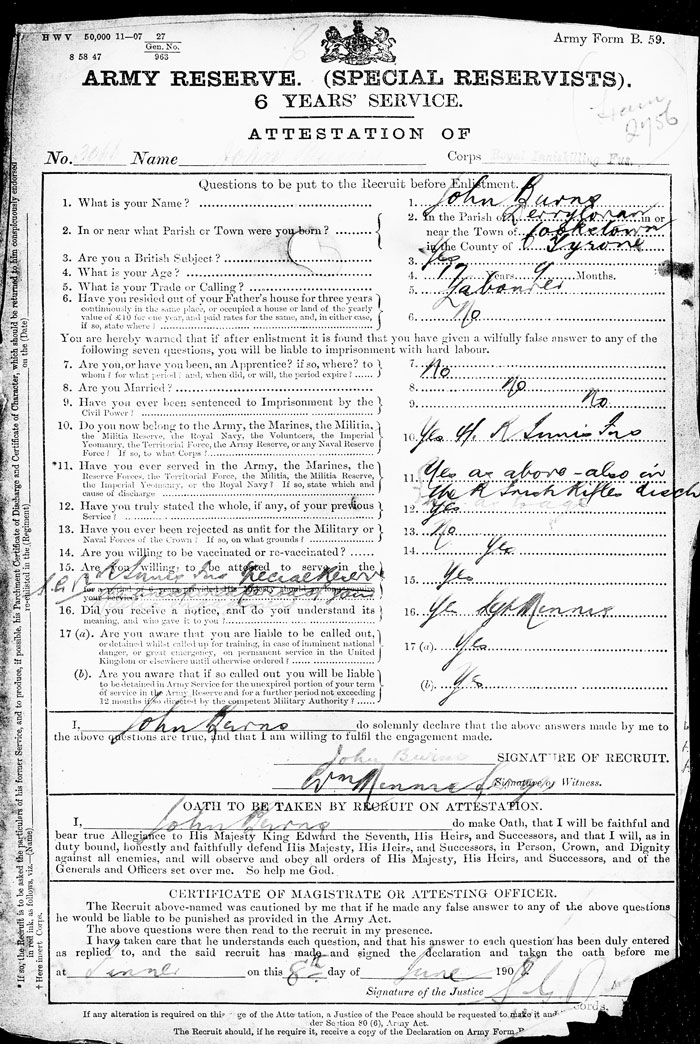 H W V 50,000 11—07 27
Gen. No.
8 58 47 963
Army Form B. 59.
ARMY RESERVE. (SPECIAL RESERVISTS).
6 YEARS' SERVICE.
2756
ATTESTATION OF
No. Name Corps Royal Inniskilling Fus.
Questions to be put to the Recruit before Enlistment.
1. What is your Name? 1. John Burns
2. In or near what Parish or Town were you born? 2. In the Parish of Derryloran in or
near the Town of Cookstown
in the County of Tyrone
3. Are you a British Subject? 3. Yes
4. What is your Age? 4. 17 Years 9 Months.
5. What is your Trade or Calling? 5. Labourer
6. Have you resided out of your Father's house for three years
continuously in the same place, or occupied a house or land of the yearly
value of £10 for one year, and paid rates for the same, and, in either case,
if so, state where? 6. No
You are hereby warned that if after enlistment it is found that you have given a wilfully false answer to any of the
following seven questions, you will be liable to imprisonment with hard labour.
7. Are you, or have you been, an Apprentice? if so, where? to
whom? for what period? and, when did, or will, the period expire? 7. No
8. Are you Married? 8. No
9. Have you ever been sentenced to Imprisonment by the
Civil Power? 9. No
10. Do you now belong to the Army, the Marines, the Militia,
the Militia Reserve, the Royal Navy, the Volunteers, the Imperial
Yeomanry, the Territorial Force, the Army Reserve, or any Naval Reserve
Force? If so, to what Corps? 10. Yes 4/. R Innis Fus
*11. Have you ever served in the Army, the Marines, the
Reserve Forces, the Territorial Force, the Militia, the Militia Reserve,
the Imperial Yeomanry, or the Royal Navy? If so, state which and
cause of discharge 11. Yes as above - also in
the R Irish Rifles disch
12. Have you truly stated the whole, if any, of your previous
Service? 12. Yes
13. Have you ever been rejected as unfit for the Military or
Naval Forces of the Crown? If so, on what grounds? 13. No
14. Are you willing to be vaccinated or re-vaccinated? 14. Yes
15. Are you willing to be attested to serve in the
R Innis Fus Special Reserve
for a period of 6 years provided His Majesty should so long require
your service? 15. Yes
16. Did you receive a notice, and do you understand its
meaning, and who gave it to you? 16. Yes Sgt Mennis
17 (a). Are you aware that you are liable to be called out,
or detained whilst called up for training, in case of imminent national
danger, or great emergency, on permanent service in the United
Kingdom or elsewhere until otherwise ordered? 17 (a). Yes
(b). Are you aware that if so called out you will be liable
to be detained in Army Service for the unexpired portion of your term
of service in the Army Reserve and for a further period not exceeding
12 months if so directed by the competent Military Authority? (b). Yes
I, John Burns do solemnly declare that the above answers made by me to
the above questions are true, and that I am willing to fulfil the engagement made.
John Burns SIGNATURE OF RECRUIT.
Wm Mennis Signature of Witness.
OATH TO BE TAKEN BY RECRUIT ON ATTESTATION.
I, John Burns do make Oath, that I will be faithful and
bear true Allegiance to His Majesty King Edward the Seventh, His Heirs, and Successors, and that I will, as in
duty bound, honestly and faithfully defend His Majesty, His Heirs, and Successors, in Person, Crown, and Dignity
against all enemies, and will observe and obey all orders of His Majesty, His Heirs, and Successors, and of the
Generals and Officers set over me. So help me God.
CERTIFICATE OF MAGISTRATE OR ATTESTING OFFICER.
The Recruit above-named was cautioned by me that if he made any false answer to any of the above questions
he would be liable to be punished as provided in the Army Act.
The above questions were then read to the recruit in my presence.
I have taken care that he understands each question, and that his answer to each question has been duly entered
as replied to, and the said recruit has made and signed the declaration and taken the oath before me
at on this 8th day of June 190
Signature of the Justice
cords.
If any alteration is required on this ge of the Attestation, a Justice of the Peace should be requested to make it and
der Section 80 (6), Army Act.
The Recruit should, if he require it, receive a copy of the Declaration on Army Form
* If so, the Recruit is to be asked the particulars of his former Service, and to produce, if possible, his Parchment Certificate of Discharge and Certificate of Character, which should be returned to him conspicuously endorsed
in red ink, as follows, viz.—(Name) re-enlisted in the (Regiment) on the (Date)
† Here insert Corps.